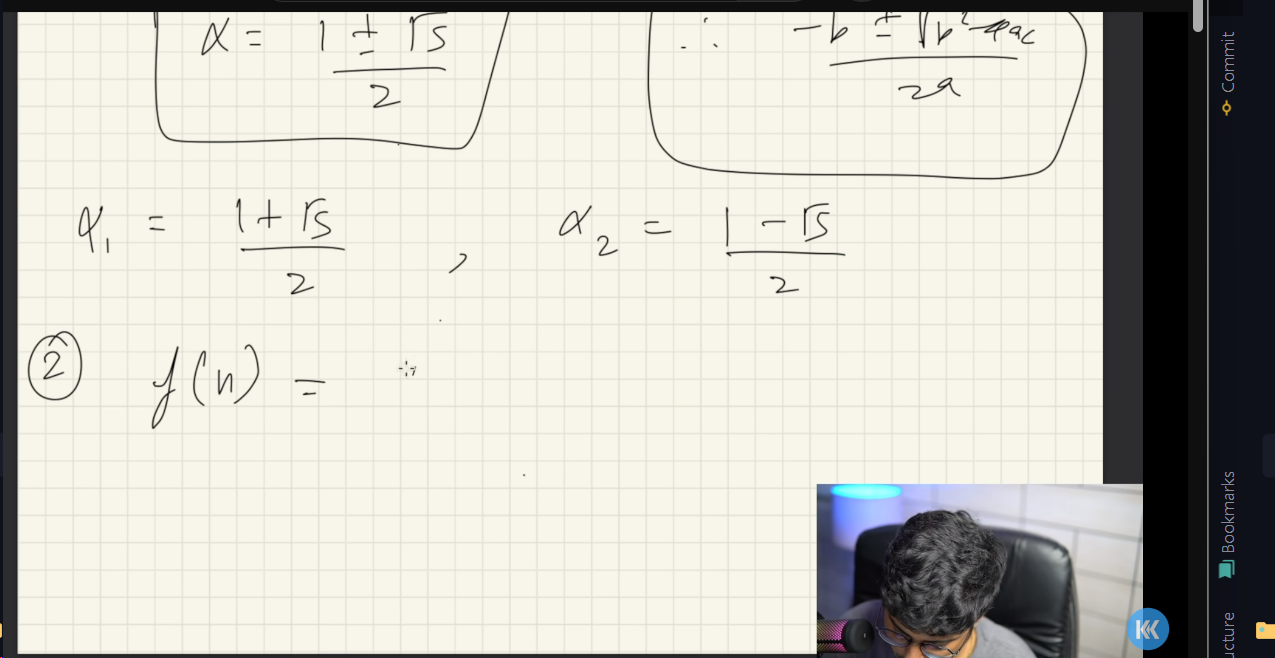 α = (1 ± √5) / 2
∴ (-b ± √(b² - 4ac)) / 2a
α₁ = (1 + √5) / 2 , α₂ = (1 - √5) / 2
② f(n) =
Commit
Bookmarks
ucture